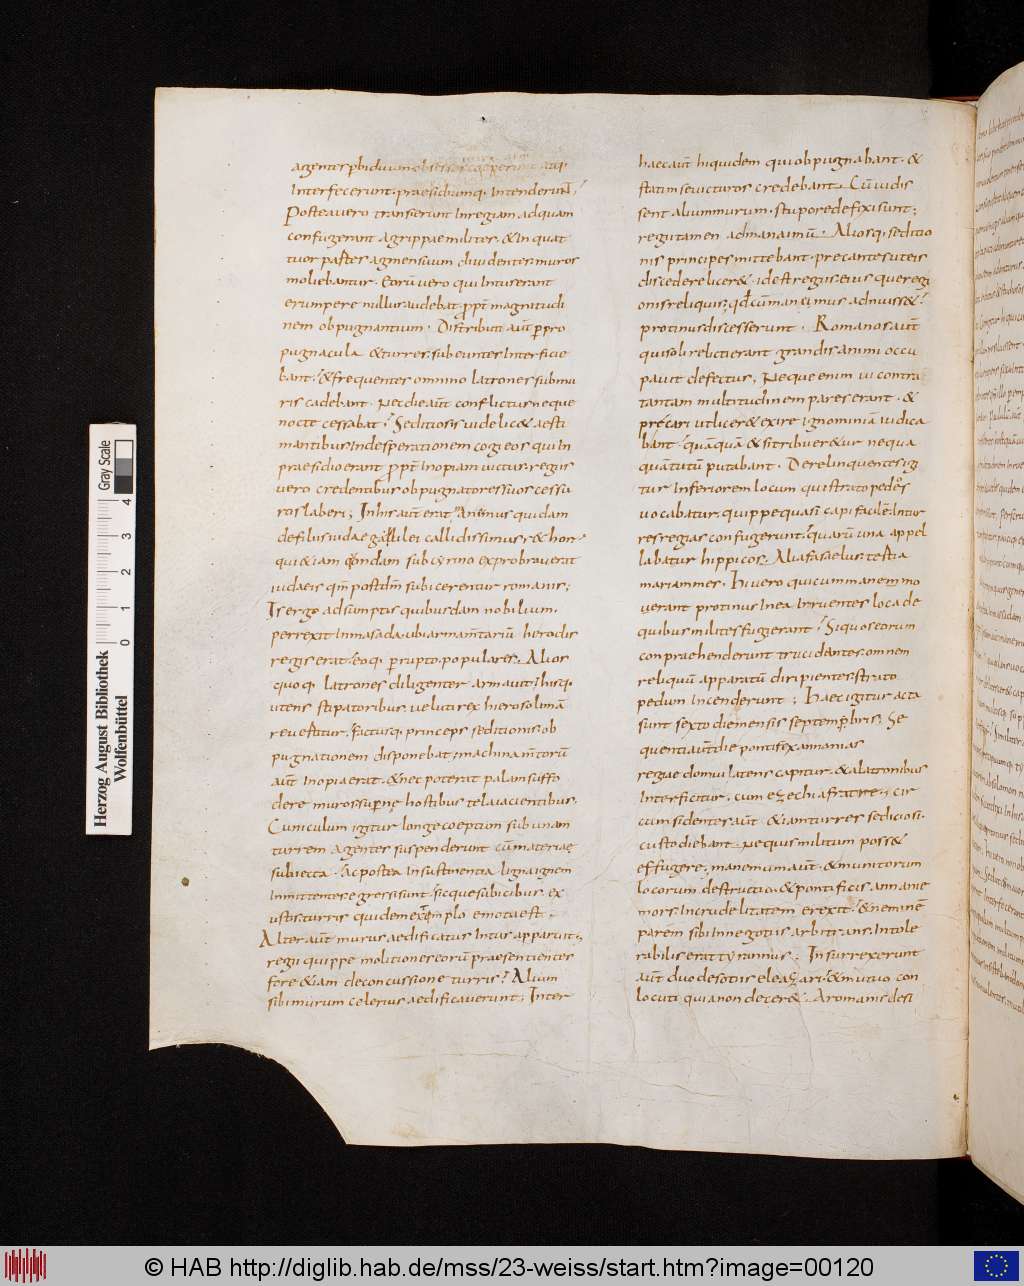 agentes p biduum obsessos coeperunt atq;
Interfecerunt. praesidiumq; Intenderunt;
Postea vero transierunt Inregiam adquam
confugerant agrippae milites. & In quat
tuor partes agmen suum diuidentes muros
moliebantur. Eorū vero qui Intus erant
erumpere nullus audebat. ꝓpt magnitudi
nem obpugnantium. Distributi aut̄ ꝑ pro
pugnacula & turres. subeuntes Interficie
bant. & frequentes omnino latrones sub mu
ris cadebant. Nec die aut̄ conflictus neque
nocte cessabat. Seditiosis videlic& aesti
mantibus Indesperationem cogi eos qui In
praesidio erant ꝓpt Inopiam uictus. regiis
uero credentibus obpugnatores suos cessu
ros labori; In his aut̄ erat manemus quidam
defilius iudae galilei callidissimus & hon
qui & iam quondam sub cyrino exprobraverat
iudaeis qm̄ post dm̄ subicerentur romanis;
Is ergo adsumptis quibusdam nobilium.
perrexit In masada. ubi armam̄tariū herodis
regis erat. eoq; prupto. populares. Alios
quoq; latrones diligenter armauit. hisq;
utens stipatoribus. uelut rex hierosolimā
revertitur. Factusq; princeps seditionis ob
pugnationem disponebat. machinam̄torū
aut̄ Inopia erat. & nec poterat palam suffo
dere muros suꝑne hostibus tela iacientibus.
Cuniculum igitur longe coeptum sub unam
turrem agentes suspenderunt cū materiae
subiecta. Ac postea In sustinentia ligna ignem
Inmittentes egressi sunt. sicque subicibus ex
ustis. turris quidem extemplo emota est.
Alter aut̄ murus aedificatus Intus apparuit;
regii quippe molitiones eorū praesentientes
forte & iam de concussione turris. Alium
sibi murum celerius aedificaverunt; Inter
haec aut̄ hi quidem qui obpugnabant. &
statim se uicturos credebant. Cū vidis
sent alium murum. stupore defixi sunt;
regii tamen ad manaimū. Aliosq; seditio
nis principes mittebant. precantes uteis
discedere licer&. id est regiis eius que regi
onis reliquis, qd cum manaimus adnuiss&.
protinus discesserunt. Romanos aut̄
qui soli relicti erant grandis animi occu
pavit defectus; Neque enim ui contra
tantam multitudinem pares erant. &
precari ut licer& exire ignominiā iudica
bant. quāquā & si tribueretur ne qua
quā tutū putabant. Derelinquentes ig
tur Inferiorem locum qui stratopedos
vocabatur. quippe quasi capi facilē. Intur
res regias confugerunt. quarū una appel
labatur hippicos. Alia fasaelus. tertia
mariammes. Hi vero qui cum manemmo
uerant protinus In ea. Irruentes loca de
quibus milites fugierant. Si quos eorum
conpraehenderunt trucidantes. omnem
reliquū apparatū diripientes. strato
pedum Incenderunt; Haec igitur acta
sunt sexto die mensis septempbris. Se
quenti aut̄ die pontifex ananias
regiae domui latens capitur. & a latronibus
Interficitur. cum ezechia fratre. cir
cumsidentes aut̄ & iam turres sediciosi.
custodiebant. Ne quis militum poss&
effugere. manemum aut̄ & munitorum
locorum destructio. & pontificis annaniae
mors Incrudelitatem erexit. & neminē
parem sibi In negotiis arbitrans. Intole
rabilis erat tyrannus. Insurrexerunt
aut̄ duo de sotiis eleazari. & mutuo con
locuti quia non decer&. A romanis desi
Herzog August Bibliothek
Wolfenbüttel
Gray Scale
0 1 2 3 4
© HAB http://diglib.hab.de/mss/23-weiss/start.htm?image=00120